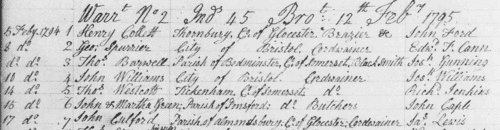 Warrt. No 2 Ind 45 Brot. 12th Feby 1795
5 Feby. 1794 1 Henry Collett Thornbury, C. of Glocester Brazier &c John Ford
8 do 2 Geo: Spurrier City of Bristol Cordwainer Edwd. T. Cann
do do 3 Thos. Barwell Parish of Bedminster, C. of Somerset, Blacksmith Jos: Gunning
10 do 4 John Williams City of Bristol Cordwainer Jos: Williams
14 do 5 Thos. Westcott Tickenham, C. of Somerset do Richd. Jenkins
16 do 6 John & Martha Green, Parish of do Butchers John Caple
17 do 7 John Parish of almondsbury, C. of Glocester, Cordwainer Jas. Lewis